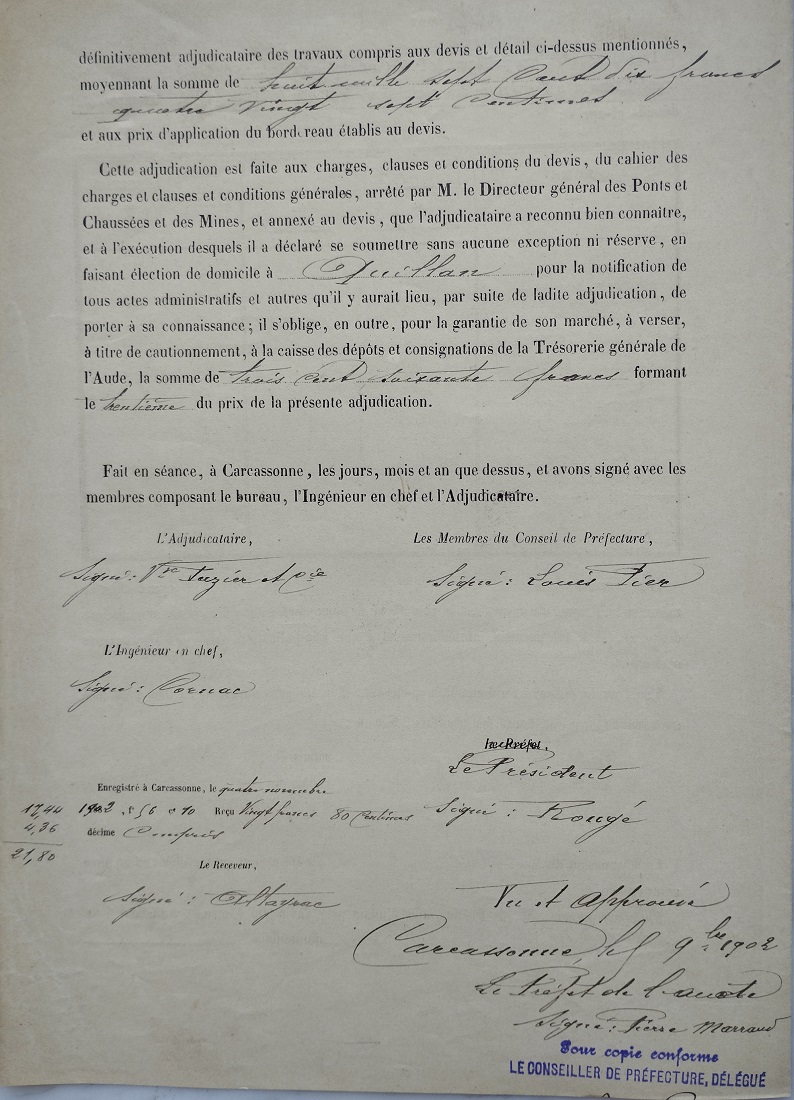 définitivement adjudicataire des travaux compris aux devis et détail ci-dessus mentionnés,
moyennant la somme de huit mille sept Cent dix francs
quatre vingt sept centimes
et aux prix d'application du bordereau établis au devis.
Cette adjudication est faite aux charges, clauses et conditions du devis, du cahier des
charges et clauses et conditions générales, arrêté par M. le Directeur général des Ponts et
Chaussées et des Mines, et annexé au devis, que l'adjudicataire a reconnu bien connaître,
et à l'exécution desquels il a déclaré se soumettre sans aucune exception ni réserve, en
faisant élection de domicile à Quillan pour la notification de
tous actes administratifs et autres qu'il y aurait lieu, par suite de ladite adjudication, de
porter à sa connaissance; il s'oblige, en outre, pour la garantie de son marché, à verser,
à titre de cautionnement, à la caisse des dépôts et consignations de la Trésorerie générale de
l'Aude, la somme de trois cent soixante francs formant
le trentième du prix de la présente adjudication.
Fait en séance, à Carcassonne, les jours, mois et an que dessus, et avons signé avec les
membres composant le bureau, l'Ingénieur en chef et l'Adjudicataire.
L'Adjudicataire,
Les Membres du Conseil de Préfecture,
Signé: Vve Tuzier et Cie
Signé: Louis Fier
L'Ingénieur en chef,
Signé: Cornac
Le Préfet.
Le Président
Enregistré à Carcassonne, le quatre novembre
17,44 1902 f° 56 c 10 Reçu Vingt francs 80 Centimes
Signé: Rougé
4,36 décime Compris
21,80
Le Receveur,
Signé: Altayrac
Vu et approuvé
Carcassonne, le 5 9bre 1902
Le Préfet de l'aude
Signé: Pierre Marraud
Pour copie conforme
LE CONSEILLER DE PRÉFECTURE, DÉLÉGUÉ